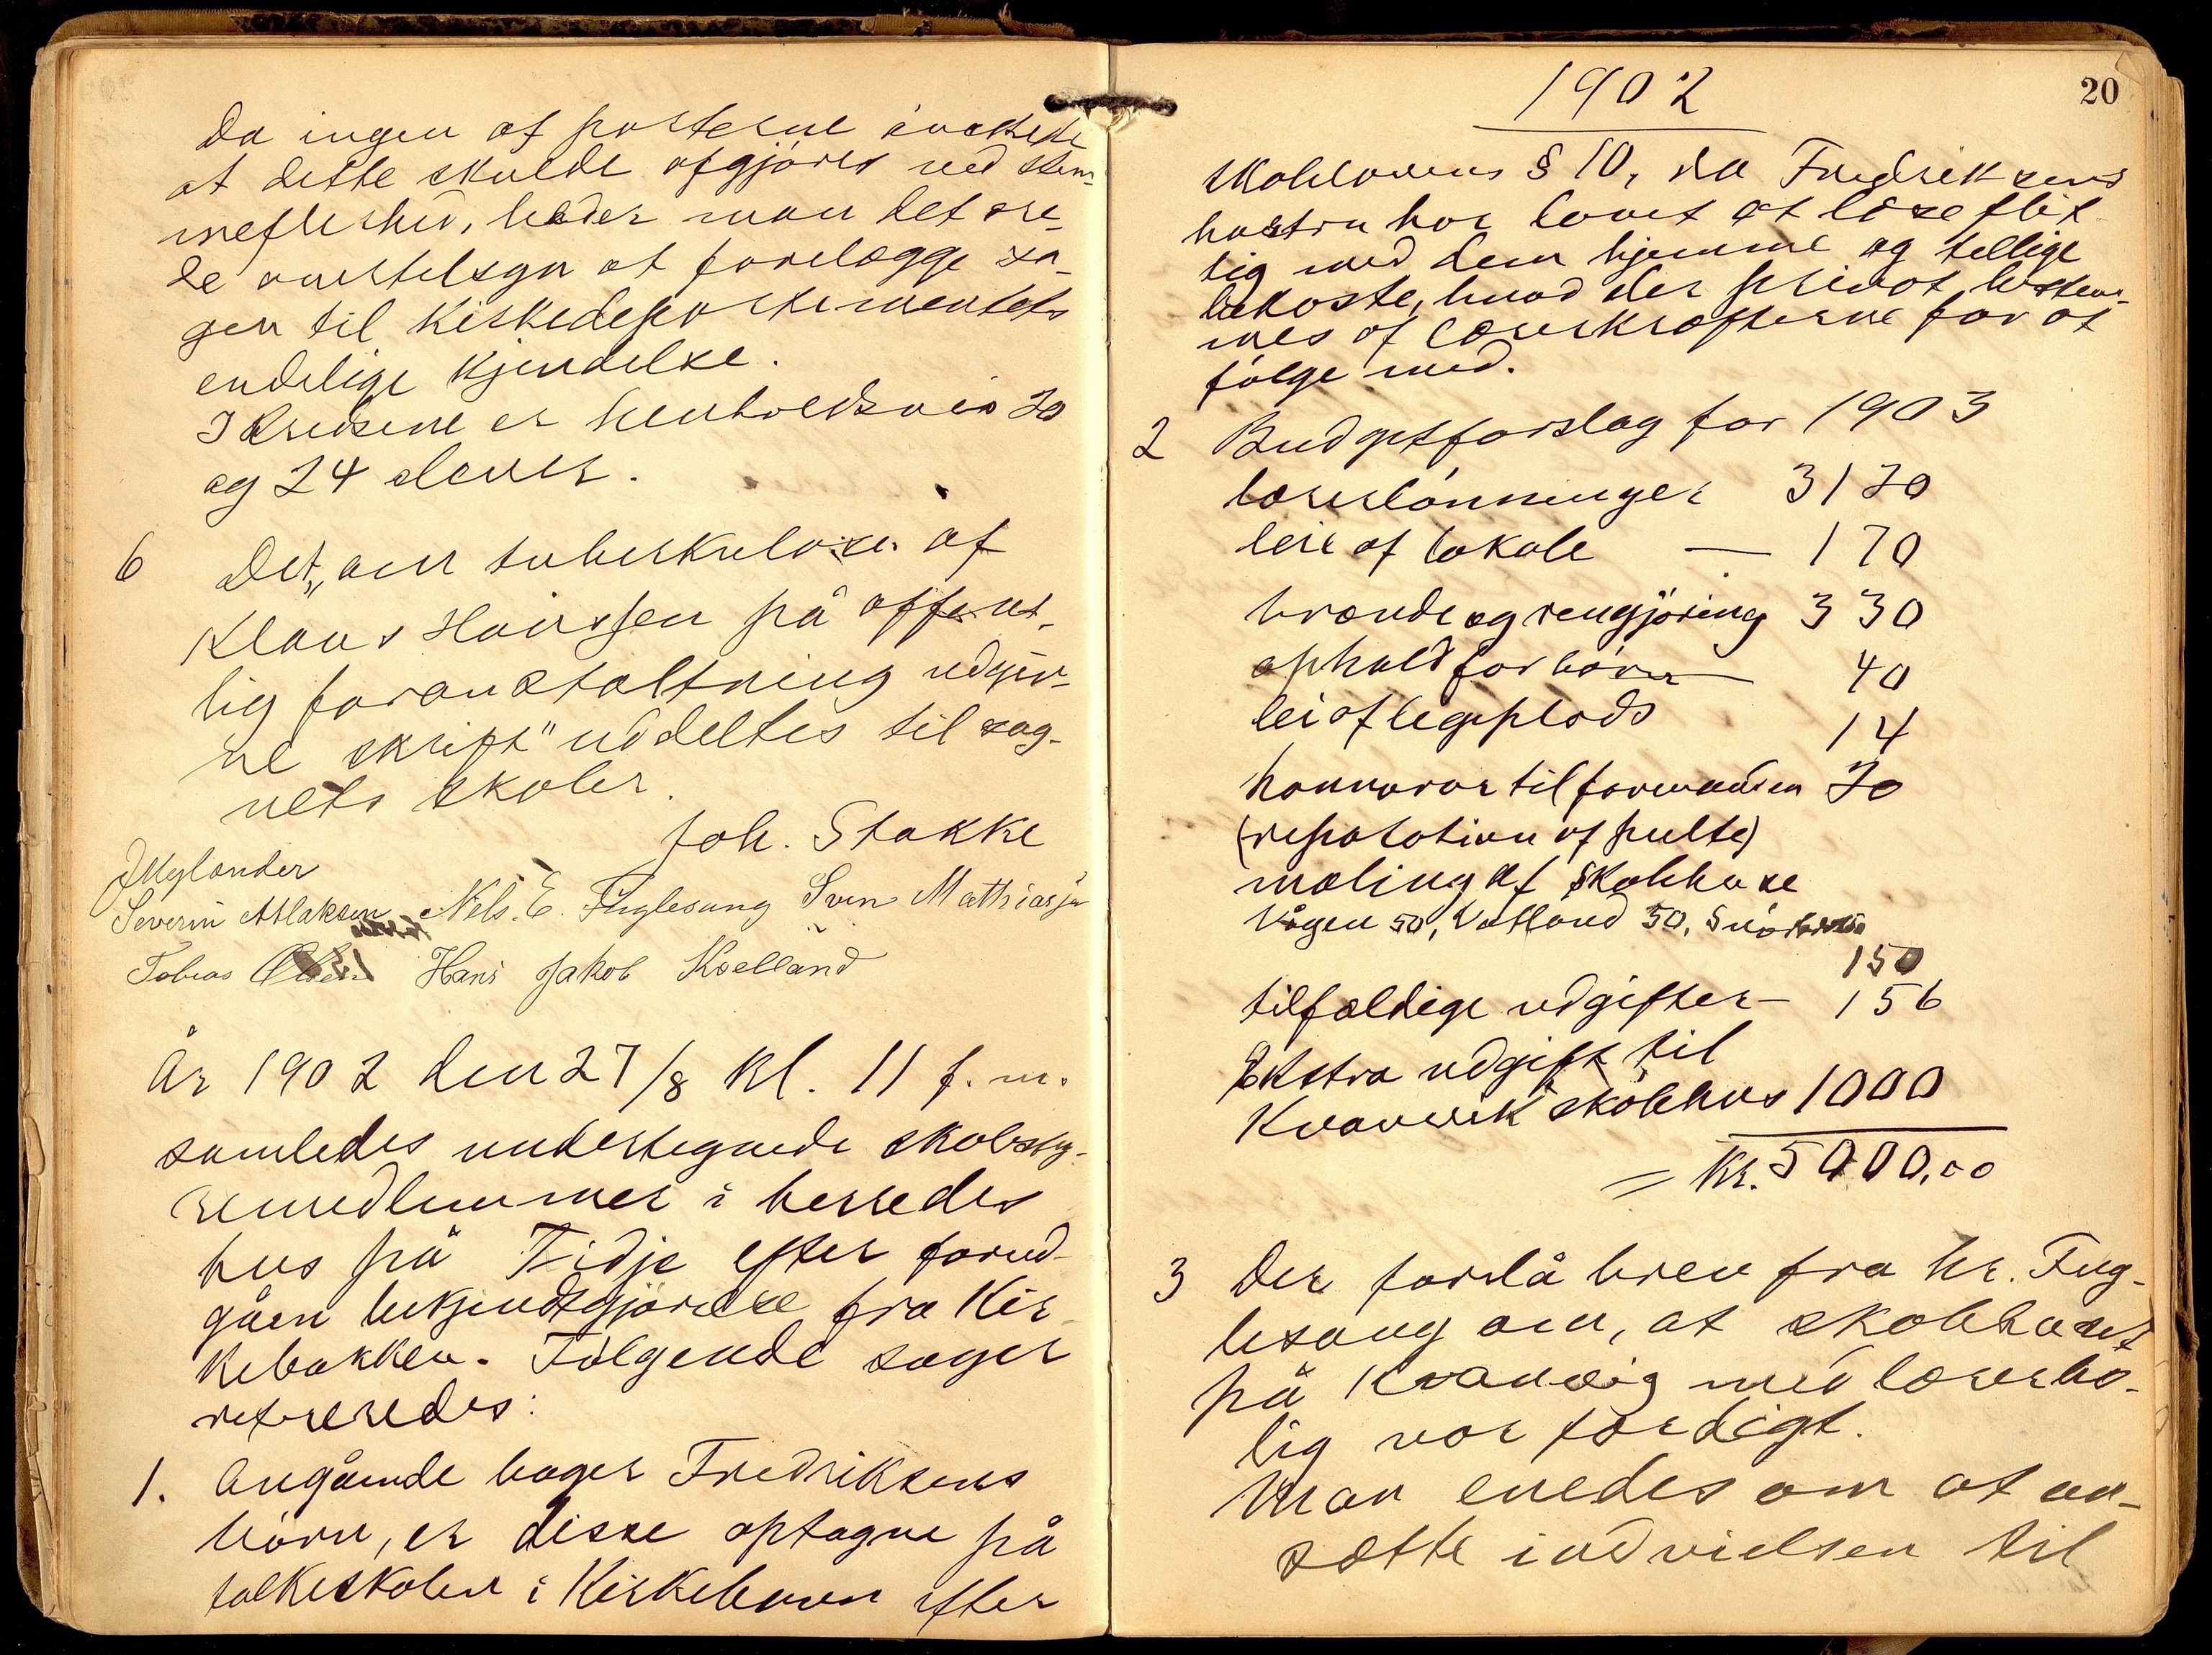 Da ingen af parterne önskede
at dette skulde afgjöres ved stem-
mefleshed, holder man det öre-
de
at forelægge sa-
gen til Kirkedepartementets
endelige Kjendelse.
I Kredsene er henholdsvis 20
og 24 elever.
6 Det "om tuberkulose af
Klaus Hanssen på offent-
lig foranstaltning udgiv-
ne skrift" uddeltes til sog-
nets skoler.
Joh. Stakke
J Mylander
Severin Atlaksen Nels. E. Fuglesang Sven Mathiasen
Tobias Olsen Hans Jakob Koelland
År 1902 den 27/8 Kl. 11 f. m.
samledes undertegnede skolesty-
remedlemmer i herredes
hus på Tidje efter forud-
gåen bekjendtgjörelse fra Kir-
kebakken. Fölgende sager
refereredes:
1. Angående bager Fredriksens
börn, er disse optagne på
folkeskolen i Kirkehavn efter
1902
20
Skolelovens § 10, da Fredriksens
hustru har lovet at läse flit-
tig med dem hjemme og tillige
bekoste, hvad der privat bestem-
mes af lærerkræfterne for at
fölge med.
2 Budgetforslag for 1903
lærerlönninger 3120
leie af lokale — 170
brænde og rengjöring 330
ophold for börn — 40
leie af legeplads 14
honnorar til formanden 20
(reparation af pulte)
maling af skolehuse
Vågen 50, Vatland 50,
150
tilfældige udgifter — 156
Ekstra udgift til
Kvanvik skolehus 1000
= Kr. 5000,00
3 Der forelå brev fra hr. Fug-
lesang om, at skolehuset
på Kvanvig med lærerbo-
lig var færdigt.
Man enedes om at an-
sætte indvielsen til